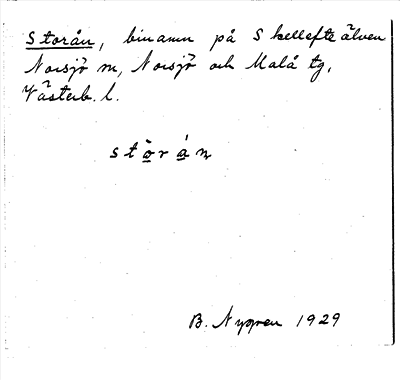 Storån, binamn på Skellefteälven
Norsjö sn, Norsjö och Malå tg,
Västerb. l.
stòrán
B. Nygren 1929